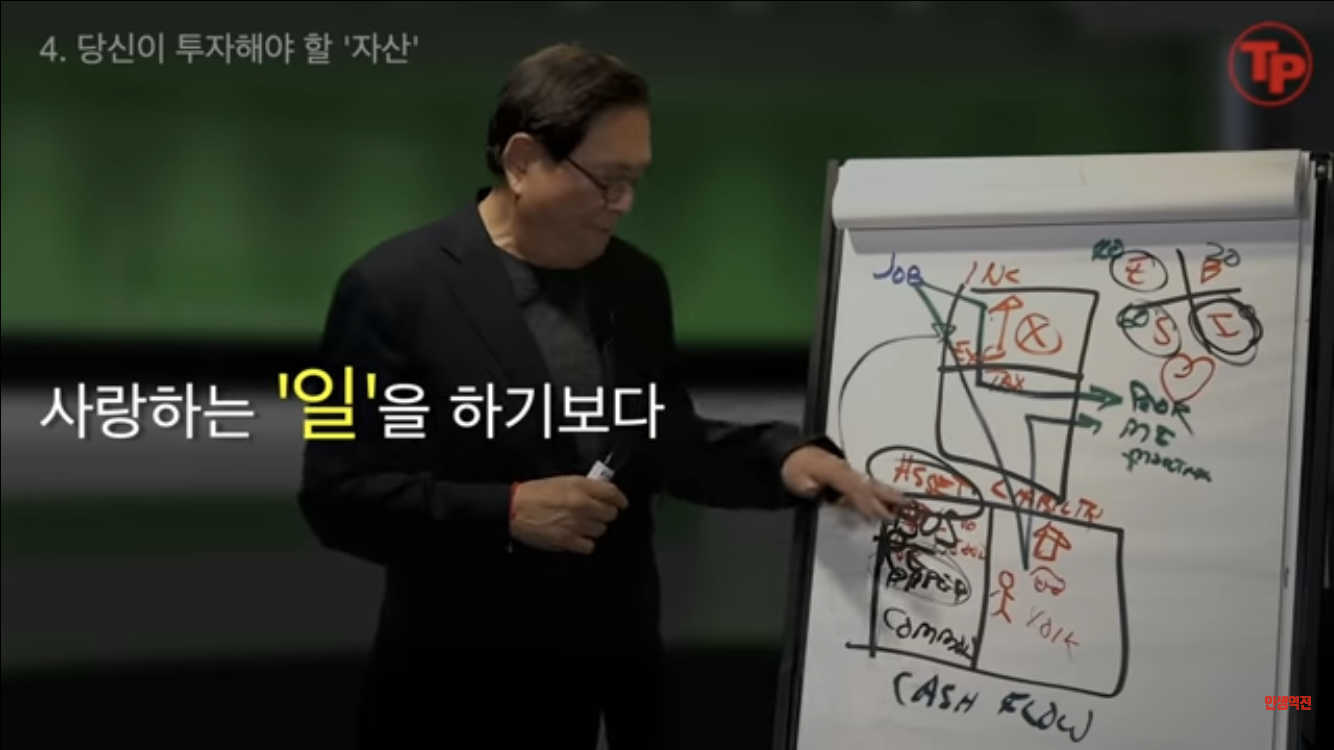 4. 당신이 투자해야 할 '자산'
TP
사랑하는 '일'을 하기보다
JOB
INC
E
B
20
S
I
X
EX
TAX
POOR
ME
ASSET
BUS
RE
PAPER
COMMOD
401K
CASH FLOW
인생역전